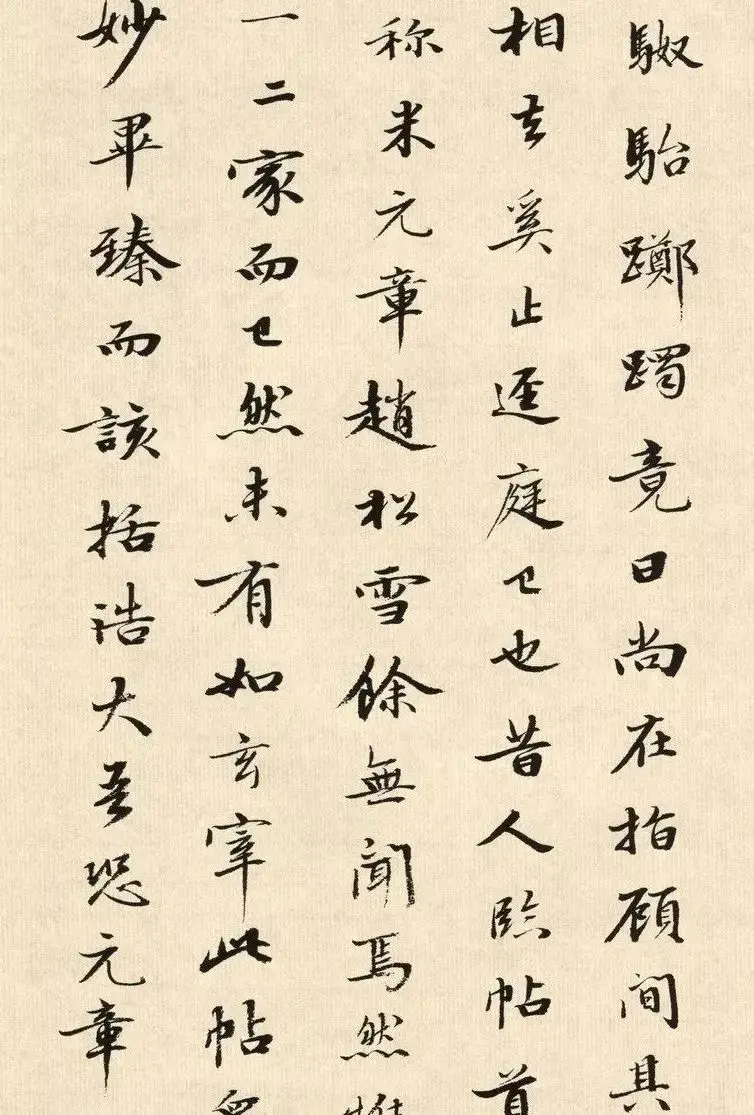 駑駘躑躅竟日尚在指顧间其
相去奚止逕庭已也昔人临帖首
称米元章趙松雪餘無聞焉然惟
一二家而已然未有如玄宰此帖衆
妙畢臻而該括浩大吾恐元章